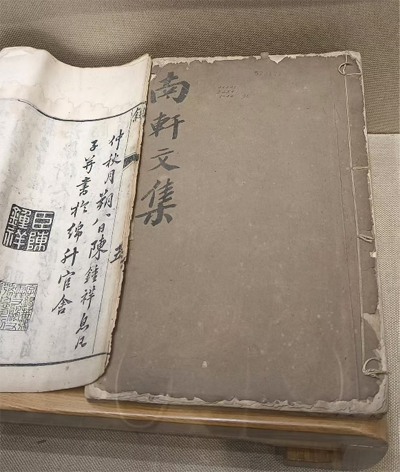 南軒文集
仲秋月朔八日陳鍾祥息凡
子并書於綿竹官舍
臣陳
鍾祥